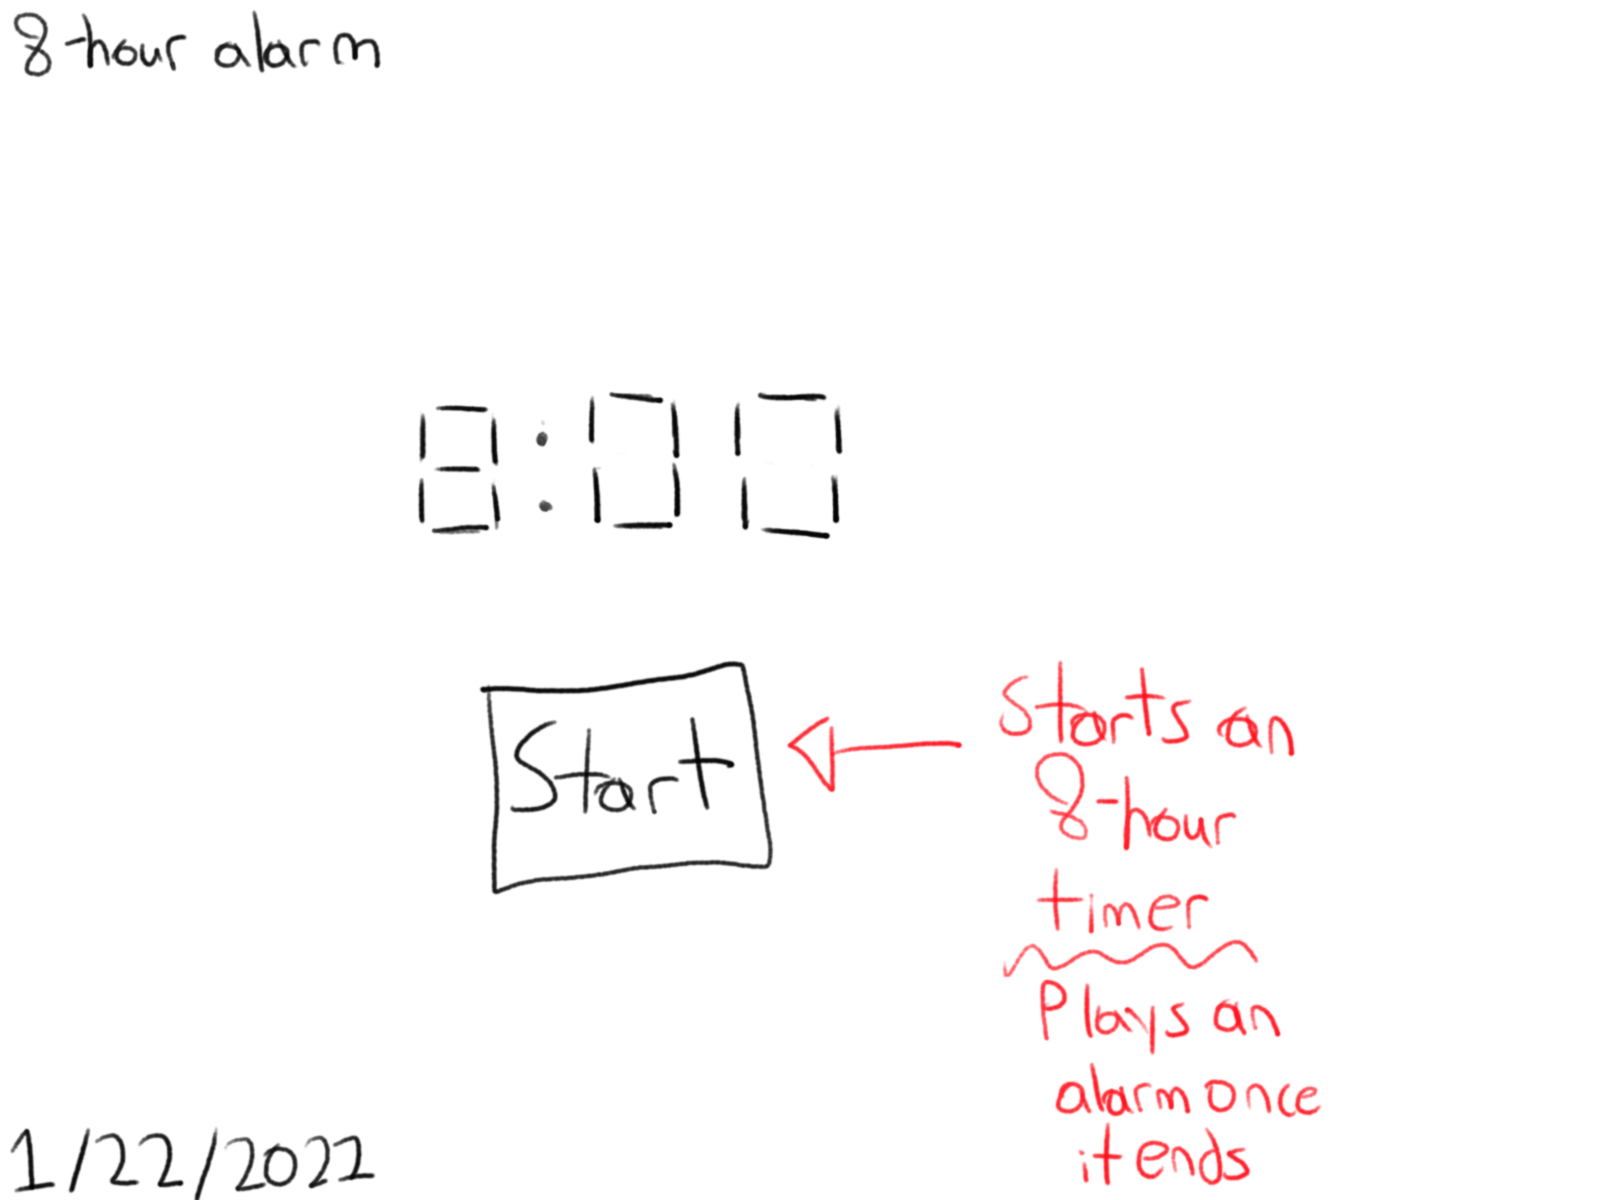 8-hour alarm
8:00
Start
Starts an
8-hour
timer
Plays an
alarm once
it ends
1/22/2022